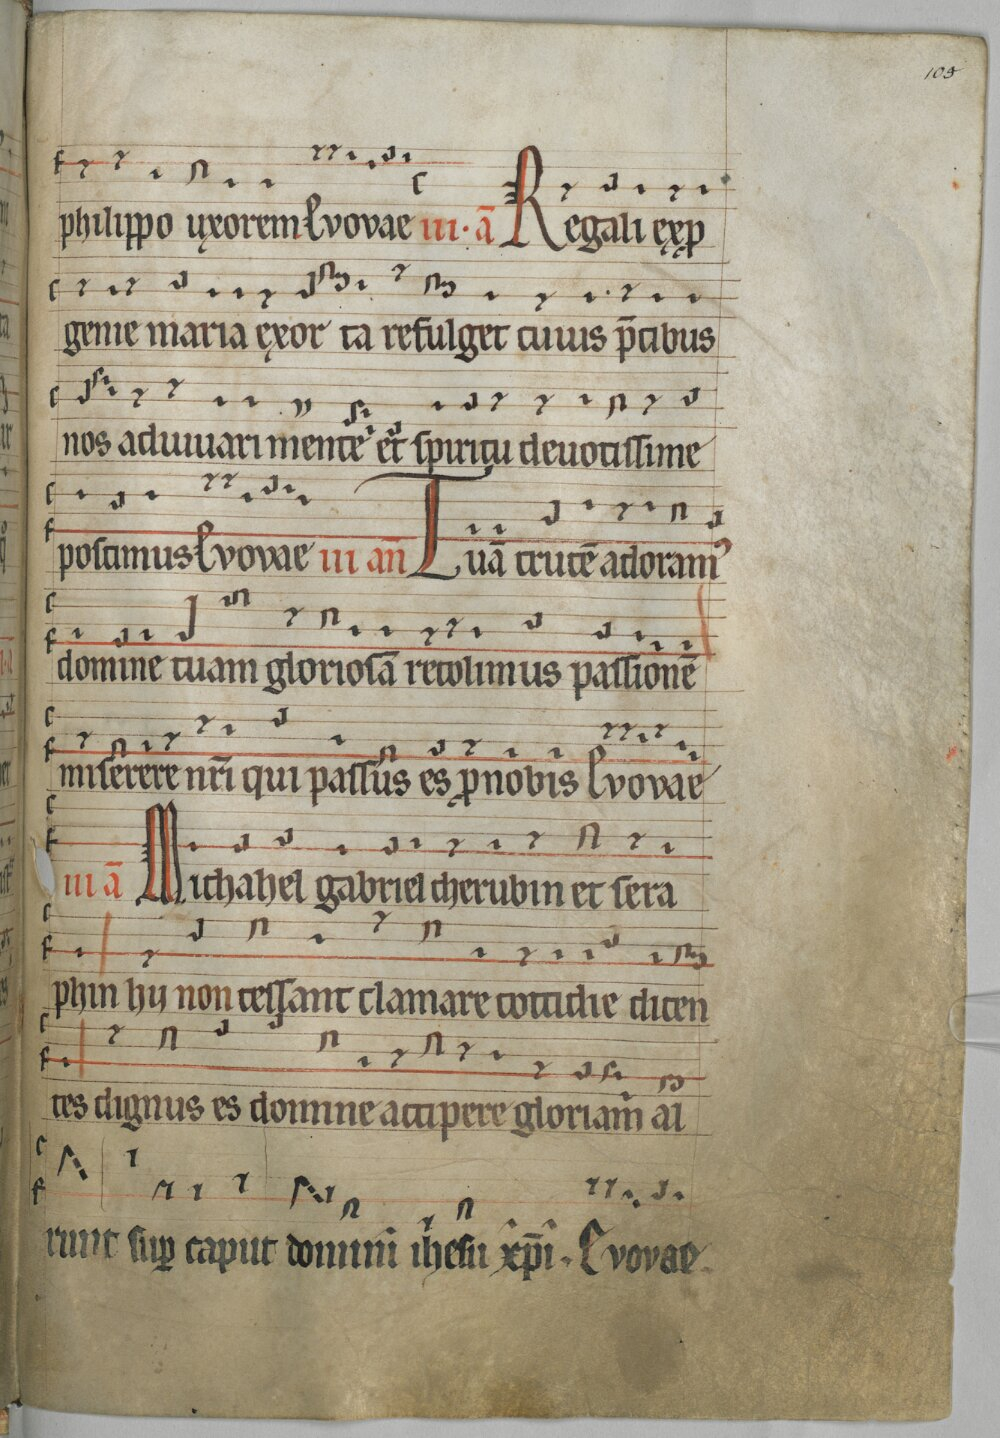 109
philippo uxorem Evovae iii · ā Regali exp
genie maria exor ta refulget cuius p̄cibus
nos adiuuari mente et spiritu deuotissime
poscimus Evovae iii an̄ Tuā crucē adoramꝰ
domine tuam gloriosā recolimus passionē
miserere nr̄i qui passus es ꝓ nobis Evovae
iii ā Michahel gabriel cherubin et sera
phin hii non cessant clamare cottidie dicen
tes dignus es domine accipere gloriam al
runt sup caput domini ihesu xp̄i . Evovae